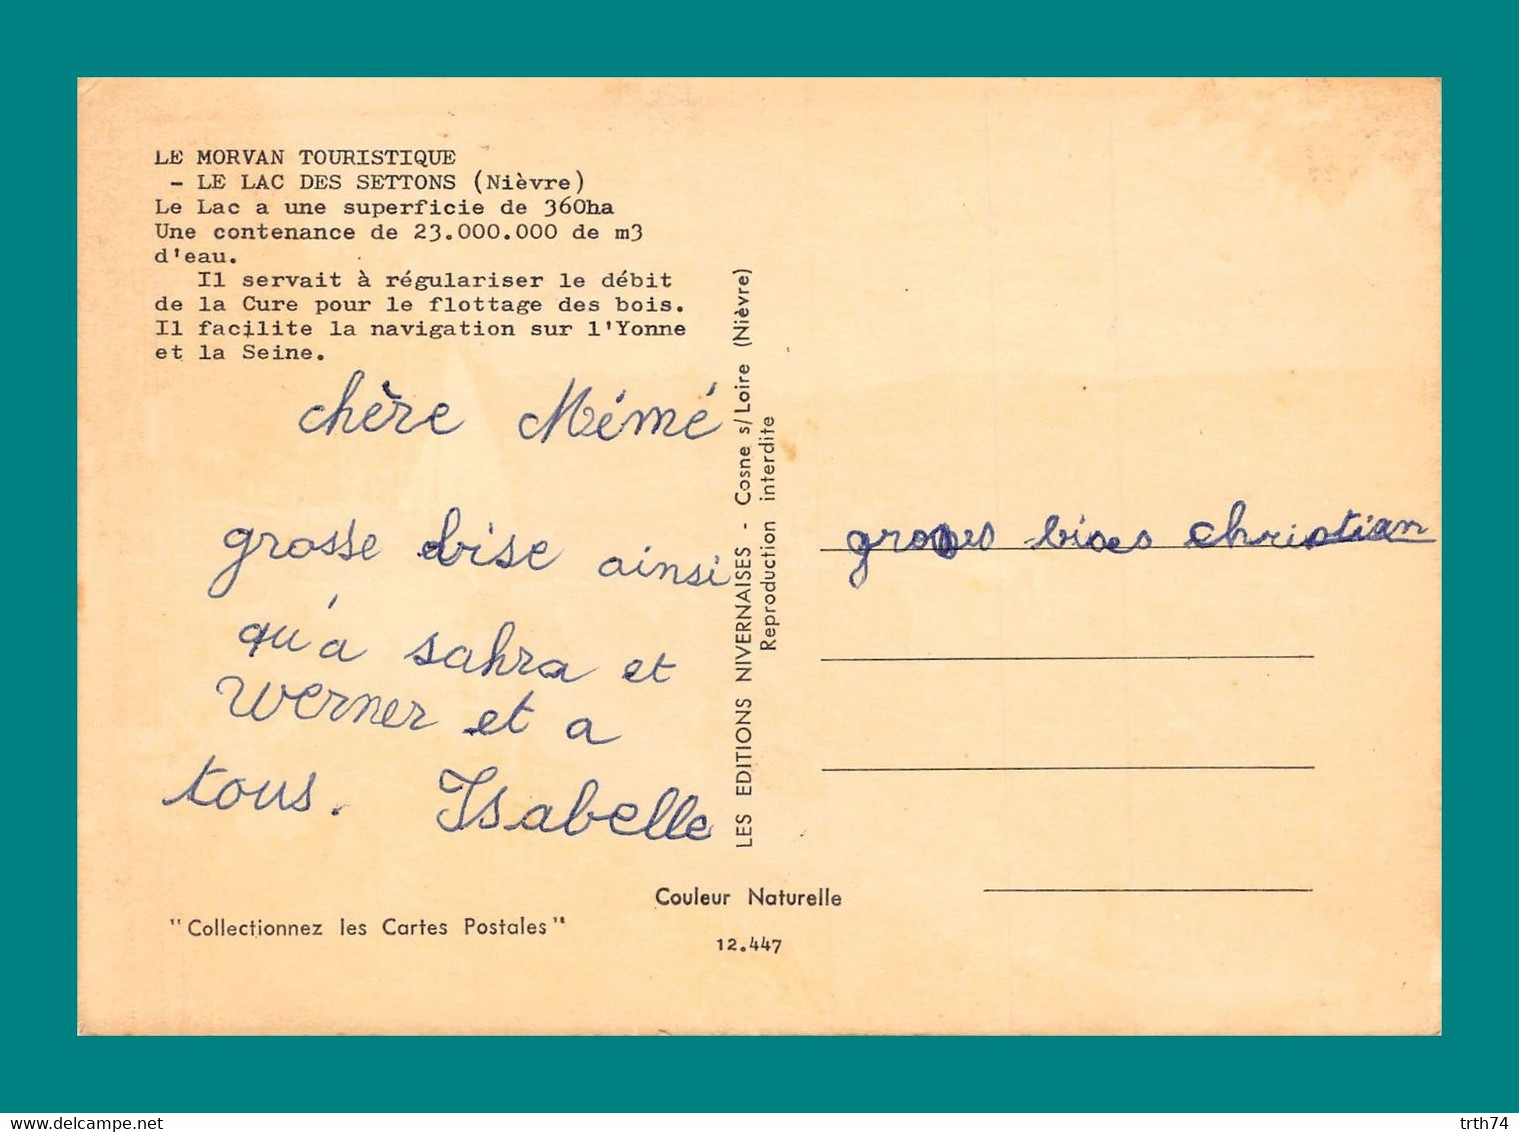 LE MORVAN TOURISTIQUE
- LE LAC DES SETTONS (Nièvre)
Le Lac a une superficie de 360ha
Une contenance de 23.000.000 de m3
d'eau.
Il servait à régulariser le débit
de la Cure pour le flottage des bois.
Il facilite la navigation sur l'Yonne
et la Seine.
chère Mémé
grosse bise ainsi
qu'a sahra et
Werner et a
tous. Isabelle
LES EDITIONS NIVERNAISES - Cosne s/Loire (Nièvre)
Reproduction interdite
groses bises christian
Couleur Naturelle
"Collectionnez les Cartes Postales"
12.447
www.delcampe.net
trth74